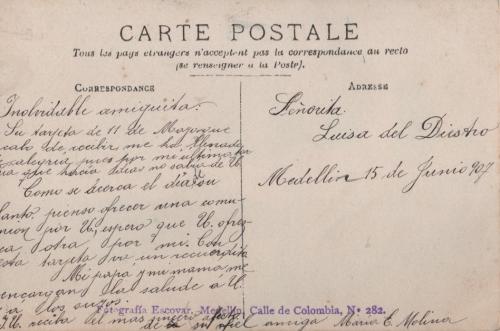 CARTE POSTALE
Tous les pays étrangers n'acceptent pas la correspondance au recto
(se renseigner à la Poste).
CORRESPONDANCE
ADRESSE
Inolvidable amiguita:
Su tarjeta de 11 de Mayo que
de recibir me ha llenado
de alegria pues por mi ultima
que hacia dias no sabia de U.
Como se acerca el dia de su
Santo, pienso ofrecer una comu-
nion por U, espero que U. ofres-
ca otra por mi. Con
esta tarjeta va un recuerdito
Mi papa y mi mama me
encargan la salude a U
y a los suyos.
U. reciba el mas sincero
de su fiel amiga Maria E. Molina
Señorita
Luisa del Diestro
Medellin 15 de Junio 907
Fotografía Escovar, Medellín, Calle de Colombia, Nº 282.